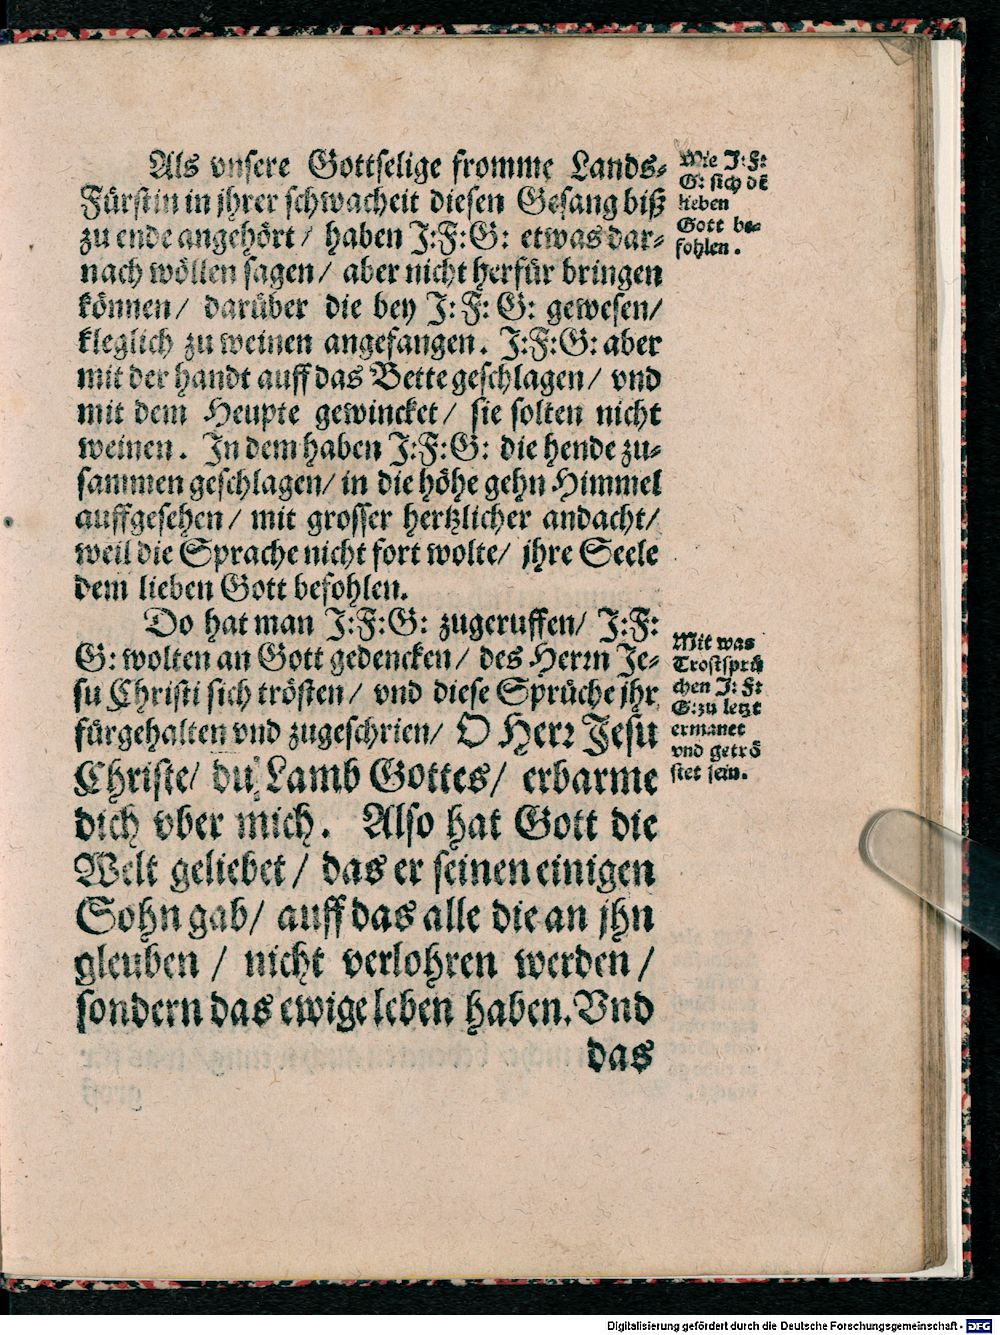 Als vnsere Gottselige fromme Lands-
Fürstin in jhrer schwacheit diesen Gesang biß
zu ende angehört/ haben J:F:G: etwas dar-
nach wöllen sagen/ aber nicht herfür bringen
können/ darüber die bey J:F:G: gewesen/
kleglich zu weinen angefangen. J:F:G: aber
mit der handt auff das Bette geschlagen/ vnd
mit dem Heupte gewincket/ sie solten nicht
weinen. In dem haben J:F:G: die hende zu-
sammen geschlagen/ in die höhe gehn Himmel
auffgesehen/ mit grosser hertzlicher andacht/
weil die Sprache nicht fort wolte/ jhre Seele
dem lieben Gott befohlen.
Wie J:F:
G: sich dē
lieben
Gott be-
fohlen.
Do hat man J:F:G: zugeruffen/ J:F:
G: wolten an Gott gedencken/ des Herrn Je-
su Christi sich trösten/ vnd diese Sprüche jhr
fürgehalten vnd zugeschrien/ O Herr Jesu
Christe/ du Lamb Gottes/ erbarme
dich vber mich. Also hat Gott die
Welt geliebet/ das er seinen einigen
Sohn gab/ auff das alle die an jhn
gleuben/ nicht verlohren werden/
sondern das ewige leben haben. Vnd
das
Mit was
Trostsprü
chen J:F:
G: zu letzt
ermanet
vnd getrö
stet sein.
Digitalisierung gefördert durch die Deutsche Forschungsgemeinschaft - DFG